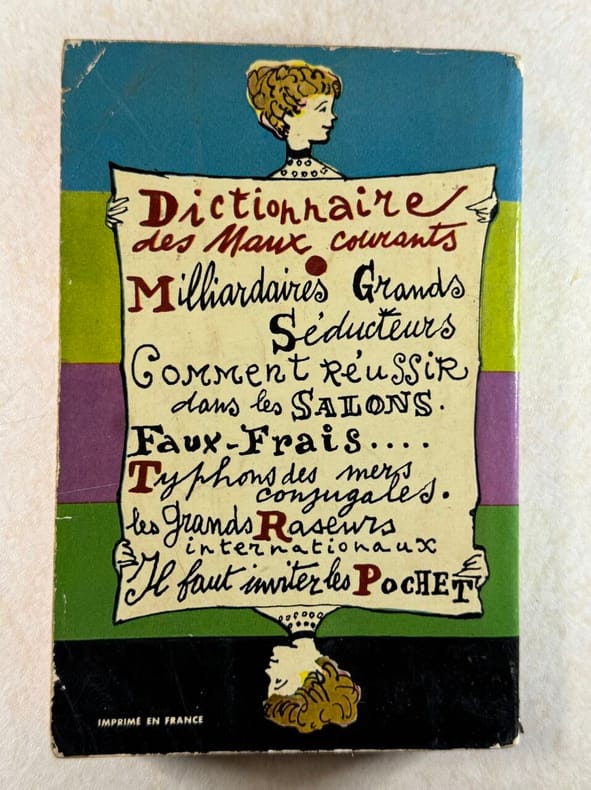 Dictionnaire
des Maux courants
Milliardaires Grands
Séducteurs
Comment réussir
dans les SALONS.
Faux-Frais....
Typhons des mers
conjugales.
les Grands Raseurs
internationaux
Il faut inviter les POCHET
IMPRIMÉ EN FRANCE